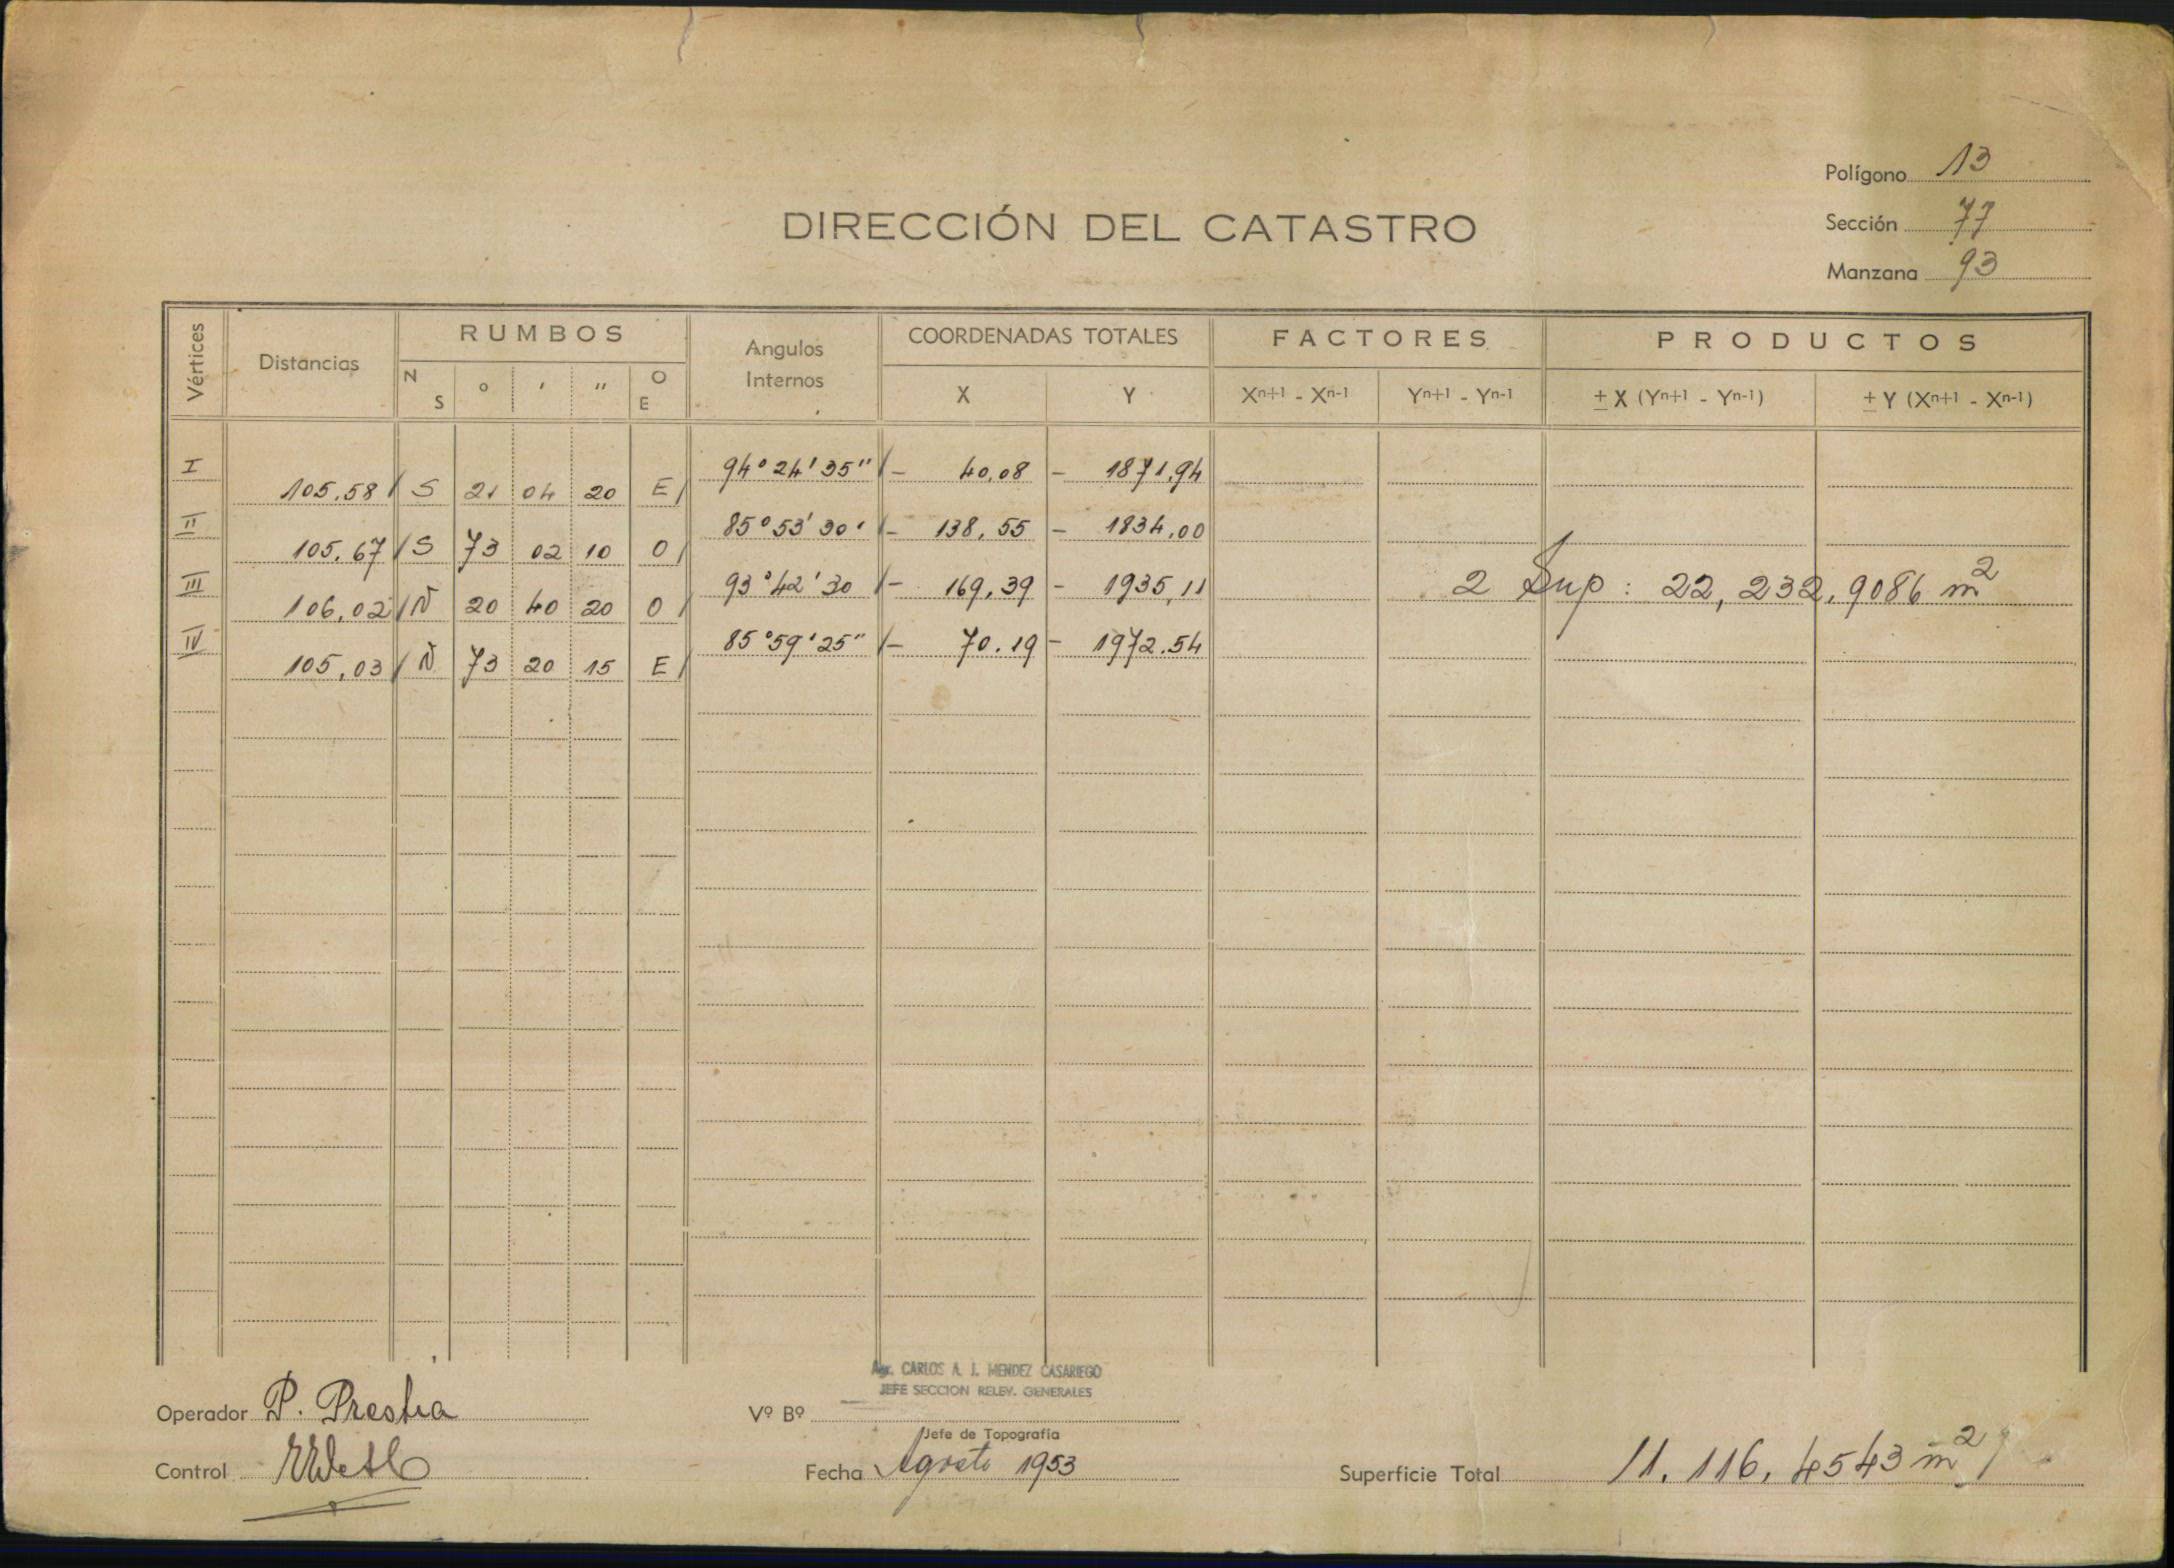 Polígono 13
DIRECCIÓN DEL CATASTRO
Sección 77
Manzana 93
Vértices Distancias RUMBOS Angulos Internos COORDENADAS TOTALES FACTORES PRODUCTOS
N S º ' " O E X Y Xn+1 - Xn-1 Yn+1 - Yn-1 ± X (Yn+1 - Yn-1) ± Y (Xn+1 - Xn-1)
I 94° 24' 35" - 40,08 - 1871,94
105,58 S 21 04 20 E
II 85° 53' 30' - 138,55 - 1834,00
105,67 S 73 02 10 O
III 93° 42' 30 - 169,39 - 1935,11
2 Sup: 22,232,9086 m2
106,02 N 20 40 20 O
IV 85° 59' 25" - 70.19 - 1972.54
105,03 N 73 20 15 E
Agr. CARLOS A. J. MENDEZ CASARIEGO
JEFE SECCION RELEV. GENERALES
Operador P. Prestia
Vº Bº
Jefe de Topografía
Control
Fecha Agosto 1953
Superficie Total 11.116,4543 m2